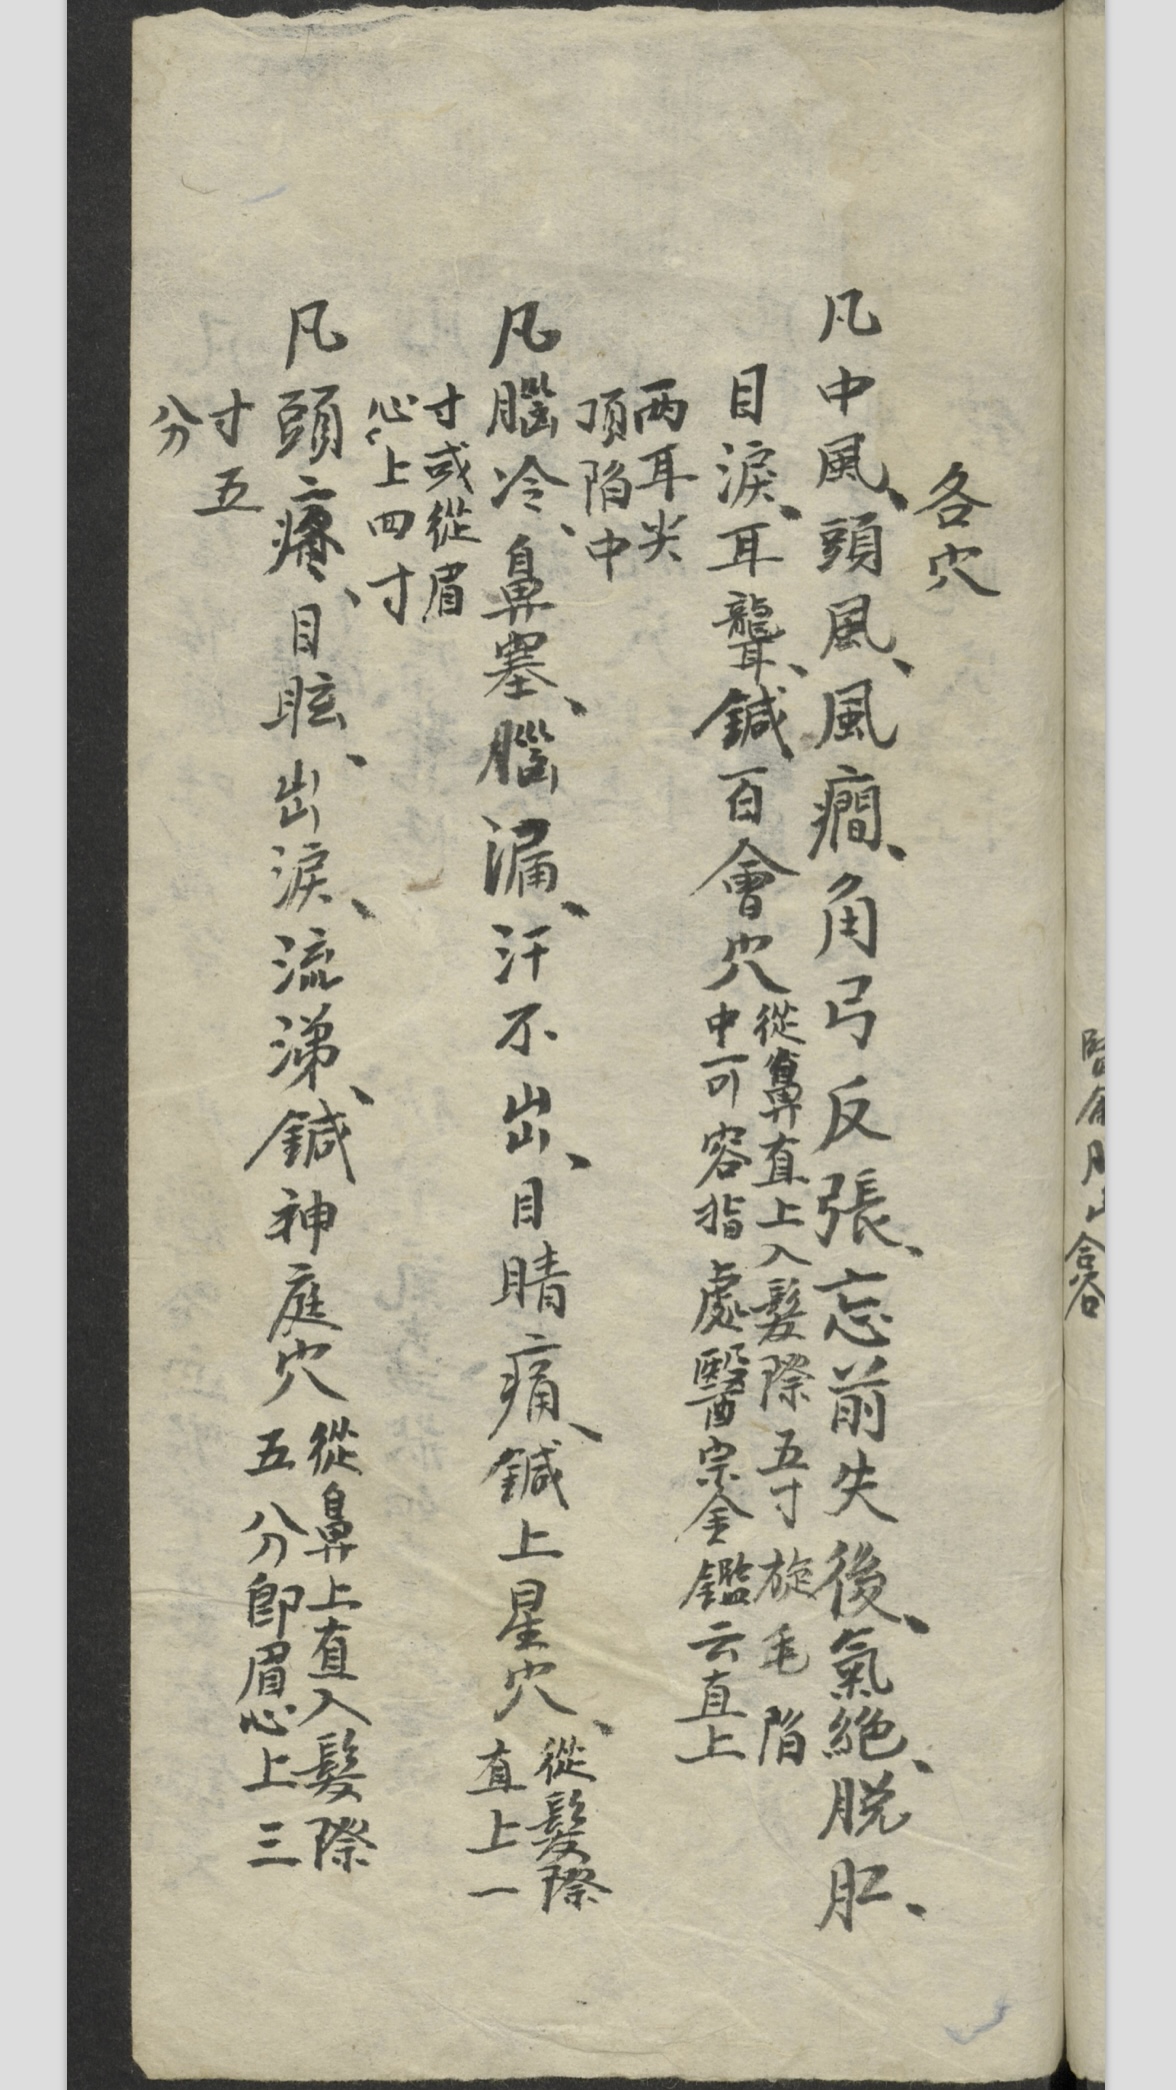 各穴
凡中風、頭風、風癎、角弓反張、忘前失後、氣絕、脱肛、
目淚、耳聾、鍼百會穴
從鼻直上入髮際五寸旋毛陷
中可容指處醫宗金鑑云直上
两耳尖
項陷中
凡腦冷、鼻塞、腦漏、汗不出、目睛痛、鍼上星穴、
從髮際
直上一
寸或從眉
心上四寸
凡頭疼、目眩、出淚、流涕、鍼神庭穴
從鼻上直入髮際
五分即眉心上三
寸五
分